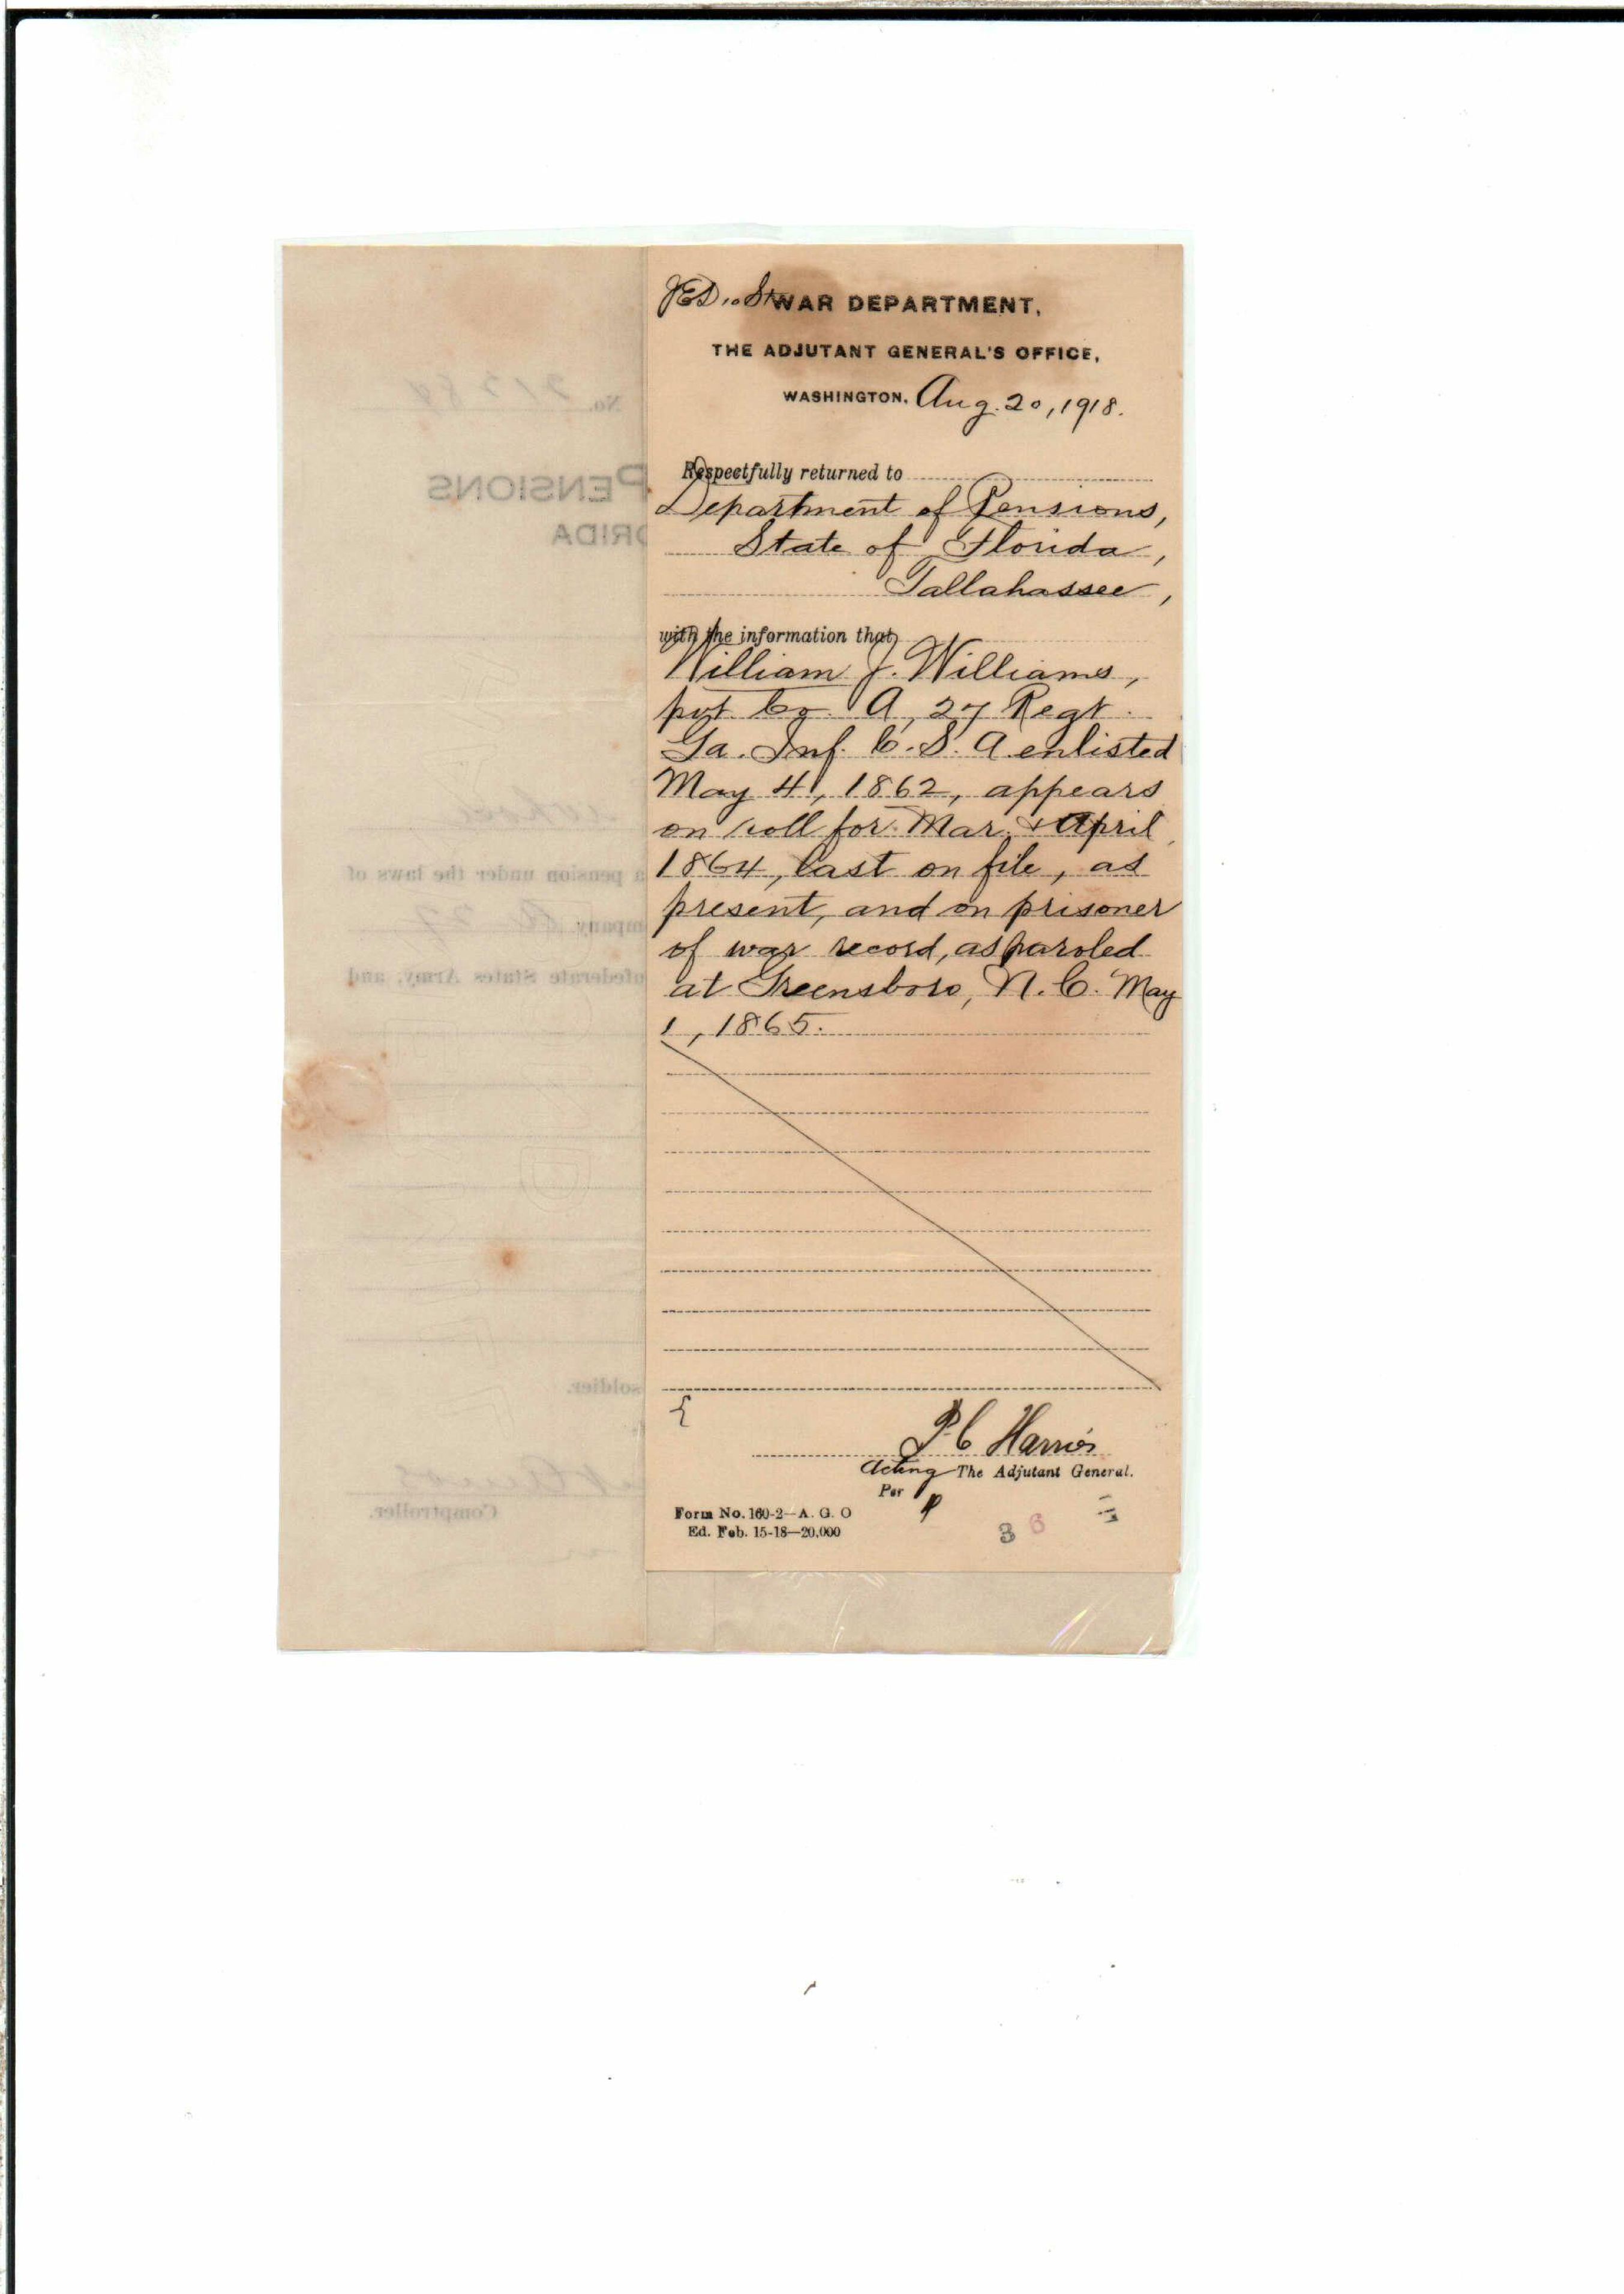 WAR DEPARTMENT,
THE ADJUTANT GENERAL'S OFFICE,
WASHINGTON, Aug. 20, 1918.
Respectfully returned to
Department of Pensions,
State of Florida,
Tallahassee,
with the information that
William J. Williams,
pvt Co. A, 27 Regt.
Ga. Inf. C. S. A enlisted
May 4, 1862, appears
on roll for Mar. & April
1864, last on file, as
present, and on prisoner
of war record, as paroled
at Greensboro, N. C. May
1, 1865.
P C Harris
Acting The Adjutant General.
Per
Form No. 160-2—A. G. O
Ed. Feb. 15-18—20,000
3 6
No.
PENSIONS
ORIDA
a pension under the laws of
mpany
nfederate States Army, and
soldier.
Comptroller.